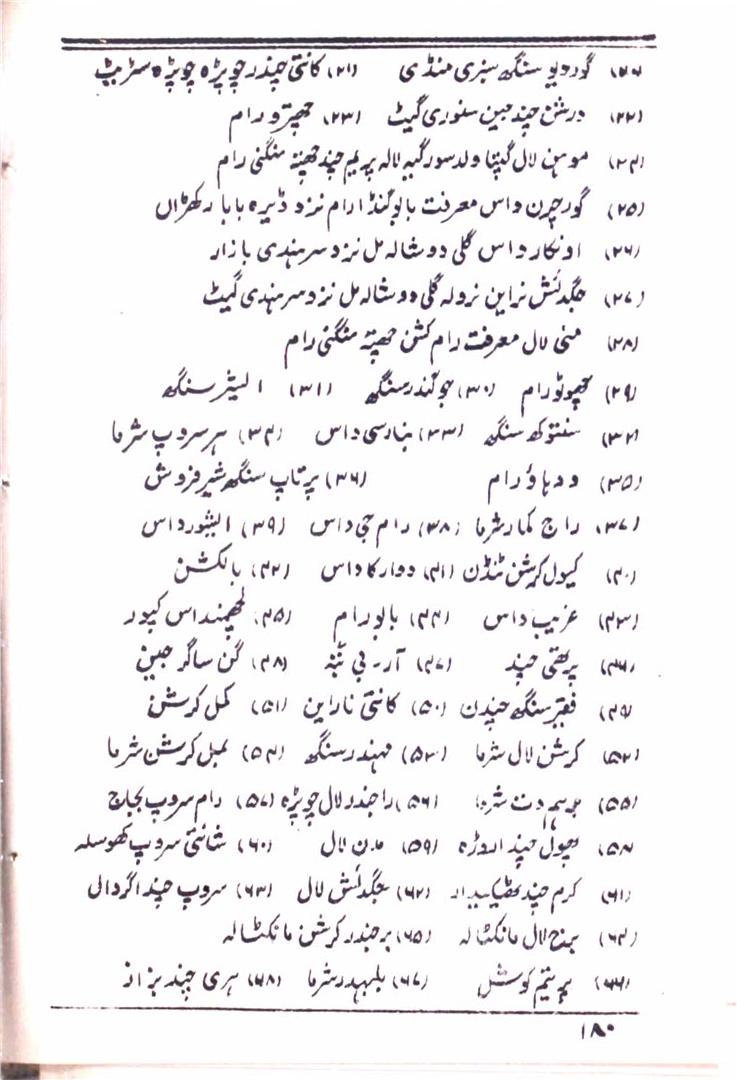 (۲۰) گوردیو سنگھ سبزی منڈی (۲۱) کانتی چندر چوپڑہ چوپڑہ سٹریٹ
(۲۲) درشن چند جین سنوری گیٹ (۲۳) چھترو رام
(۲۴) موہن لال گپتا ولد سورگیہ لالہ پریم چند چھتہ منگنی رام
(۲۵) گورچرن داس معرفت بابو گنڈا رام نزد ڈیرہ بابا رکھڑاں
(۲۶) اونکار داس گلی دوشالہ مل نزد سرہندی بازار
(۲۷) جگدئش نراین نرولہ گلی دوشالہ مل نزد سرہندی گیٹ
(۲۸) منی لال معرفت رام کشن چھتہ منگنی رام
(۲۹) چھوٹو رام (۳۰) جوگندر سنگھ (۳۱) ایشر سنگھ
(۳۲) سنتوکھ سنگھ (۳۳) بنارسی داس (۳۴) ہرسروپ شرما
(۳۵) ودہاؤ رام (۳۶) پرتاپ سنگھ شیر فروش
(۳۷) راج کمار شرما (۳۸) رام جی داس (۳۹) ایشور داس
(۴۰) کیول کرشن ٹنڈن (۴۱) دوارکا داس (۴۲) بالکشن
(۴۳) غریب داس (۴۴) بابو رام (۴۵) لچھمنداس کپور
(۴۶) پرتھی چند (۴۷) آر۔ بی بتہ (۴۸) گن ساگر جین
(۴۹) فقیر سنگھ چندن (۵۰) کانتی ناراین (۵۱) کمل کرشن
(۵۲) کرشن لال شرما (۵۳) مہندر سنگھ (۵۴) کرشن شرما
(۵۵) برہم دت شرما (۵۶) راجندر لال چوپڑہ (۵۷) رام سروپ بجاج
(۵۸) پھول چند اروڑہ (۵۹) مدن لال (۶۰) شانتی سروپ کھوسلہ
(۶۱) کرم چند (۶۲) جگدئش لال (۶۳) سروپ چند اگروالی
(۶۴) برج لال مانکٹالہ (۶۵) برجندر کرشن مانکٹالہ
(۶۶) پریتم کوشل (۶۷) بلبہدر شرما (۶۸) ہری چند بزاز
۱۸۰